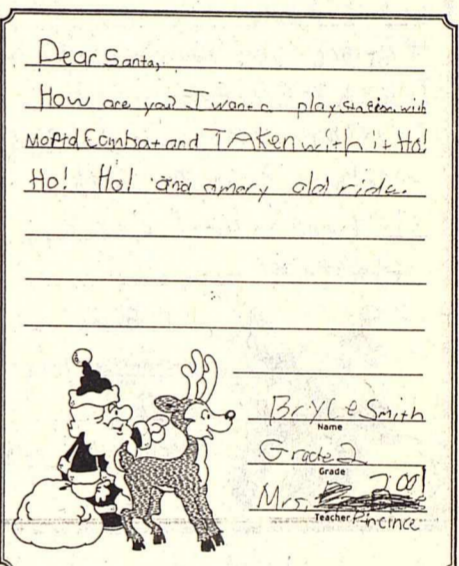 Dear Santa,
How are you? I want a play station with
Moptd Combat and TAKen with it Ho!
Ho! Ho! and amary old ride.
Bryce Smith
Name
Grade 2
Grade
Mrs. 2001
Teacher